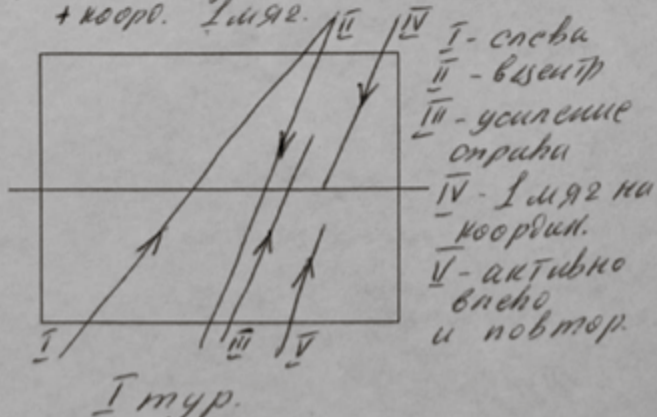 + коорд. 1 мяг.
II
IV
I - слева
II - в центр
III - усиление
справа
IV - 1 мяг на
коордик.
V - активно
влево
и повтор.
I
III
V
I тур.